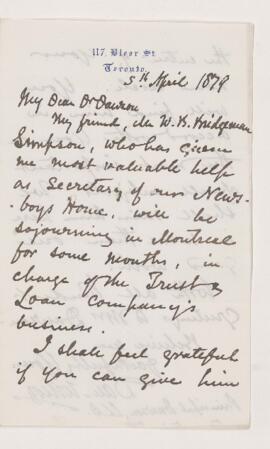 117, Bloor St
Toronto.
5th April 1879
My Dear Dr Dawson
My friend, Mr W. B. Bridgeman
Simpson, who has given
me most valuable help
as Secretary of our News-
-boys Home, will be
sojourning in Montreal
for some months, in
charge of the Trust &
Loan Company's
business.
I shall feel grateful
if you can give him